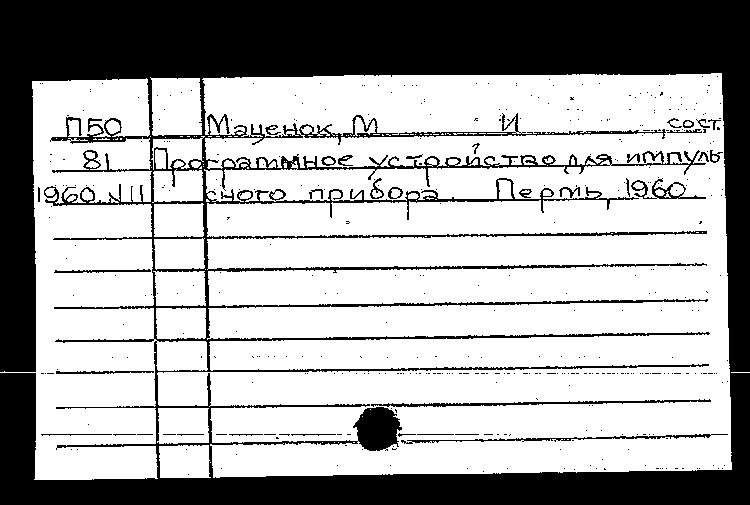 П50 Маценок, М И , сост.
81 Программное устройство для импуль
1960.N11 сного прибора. Пермь, 1960